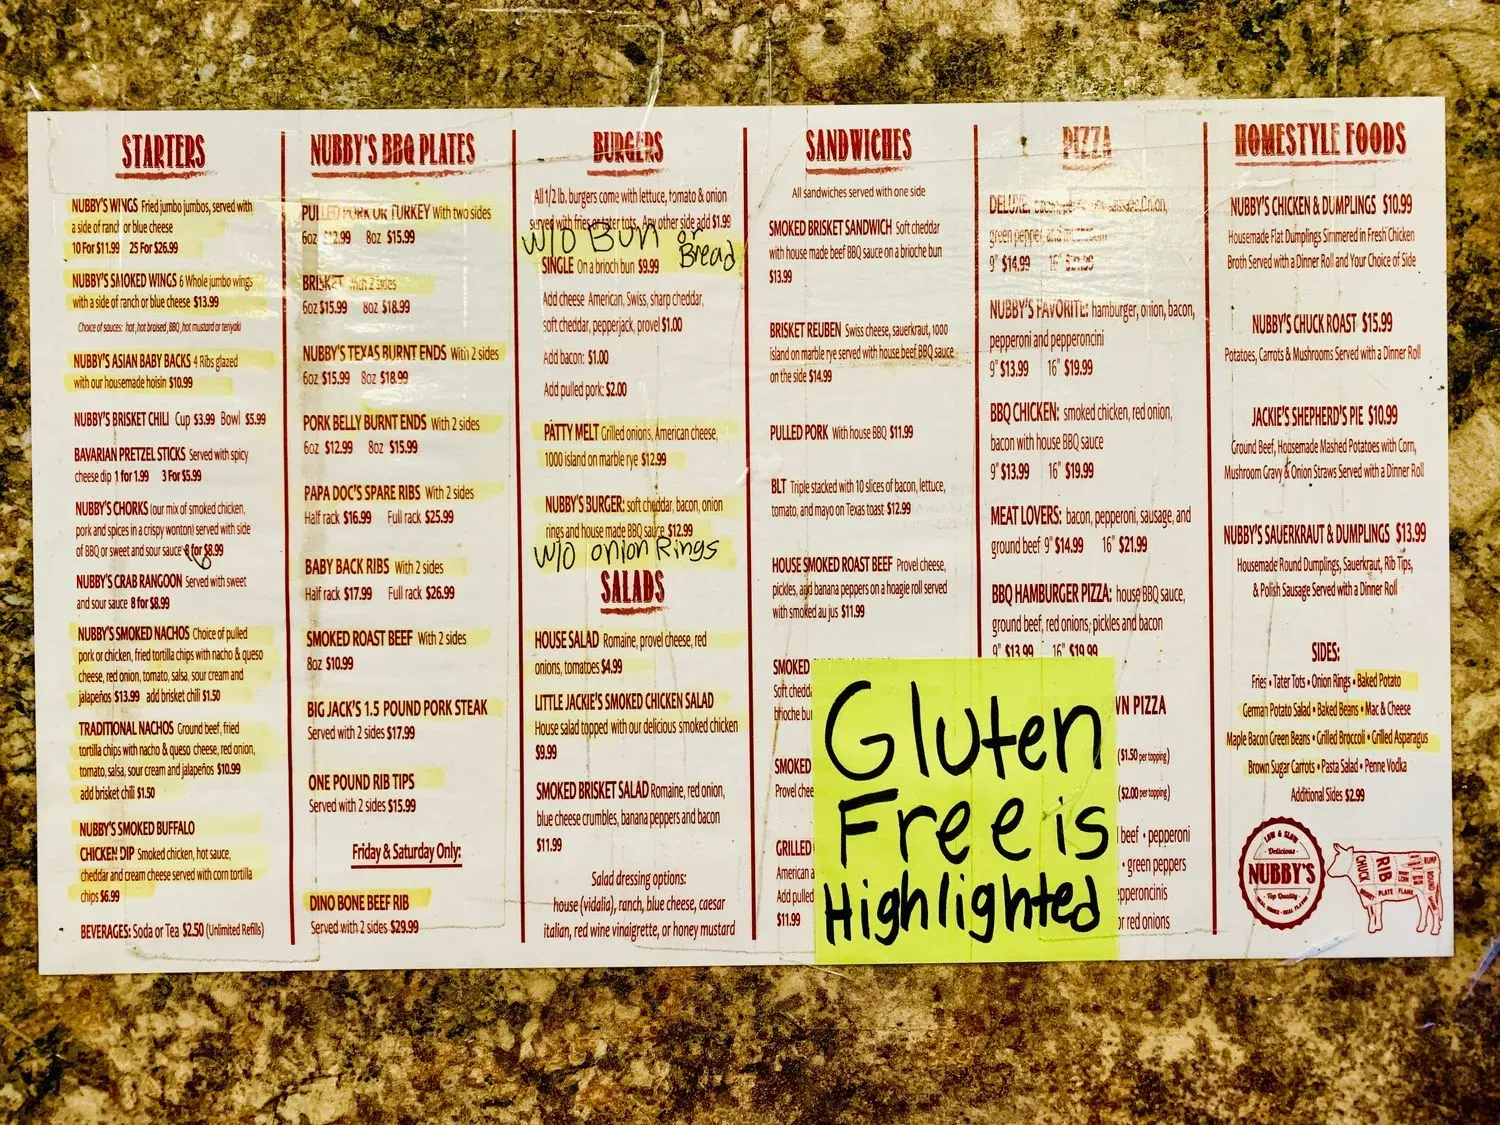 STARTERS
NUBBY'S WINGS Fried jumbo jumbos, served with
a side of ranch or blue cheese
10 For $11.99 25 For $26.99
NUBBY'S SMOKED WINGS 6 Whole jumbo wings
with a side of ranch or blue cheese $13.99
Choice of sauces: hot, hot braised, BBQ, hot mustard or teriyaki
NUBBY'S ASIAN BABY BACKS 4 Ribs glazed
with our housemade hoisin $10.99
NUBBY'S BRISKET CHILI Cup $3.99 Bowl $5.99
BAVARIAN PRETZEL STICKS Served with spicy
cheese dip 1 for 1.99 3 For $5.99
NUBBY'S CHORKS (our mix of smoked chicken,
pork and spices in a crispy wonton) served with side
of BBQ or sweet and sour sauce 8 for $8.99
NUBBY'S CRAB RANGOON Served with sweet
and sour sauce 8 for $8.99
NUBBY'S SMOKED NACHOS Choice of pulled
pork or chicken, fried tortilla chips with nacho & queso
cheese, red onion, tomato, salsa, sour cream and
jalapeños $13.99 add brisket chili $1.50
TRADITIONAL NACHOS Ground beef, fried
tortilla chips with nacho & queso cheese, red onion,
tomato, salsa, sour cream and jalapeños $10.99
add brisket chili $1.50
NUBBY'S SMOKED BUFFALO
CHICKEN DIP Smoked chicken, hot sauce,
cheddar and cream cheese served with corn tortilla
chips $6.99
BEVERAGES: Soda or Tea $2.50 (Unlimited Refills)
NUBBY'S BBQ PLATES
PULLED PORK OR TURKEY With two sides
6oz $12.99 8oz $15.99
BRISKET With 2 sides
6oz $15.99 8oz $18.99
NUBBY'S TEXAS BURNT ENDS With 2 sides
6oz $15.99 8oz $18.99
PORK BELLY BURNT ENDS With 2 sides
6oz $12.99 8oz $15.99
PAPA DOC'S SPARE RIBS With 2 sides
Half rack $16.99 Full rack $25.99
BABY BACK RIBS With 2 sides
Half rack $17.99 Full rack $26.99
SMOKED ROAST BEEF With 2 sides
8oz $10.99
BIG JACK'S 1.5 POUND PORK STEAK
Served with 2 sides $17.99
ONE POUND RIB TIPS
Served with 2 sides $15.99
Friday & Saturday Only:
DINO BONE BEEF RIB
Served with 2 sides $29.99
BURGERS
All 1/2 lb. burgers come with lettuce, tomato & onion
served with fries or tater tots. Any other side add $1.99
W/O Bun or
Bread
SINGLE On a brioch bun $9.99
Add cheese American, Swiss, sharp cheddar,
soft cheddar, pepperjack, provel $1.00
Add bacon: $1.00
Add pulled pork: $2.00
PATTY MELT Grilled onions, American cheese,
1000 island on marble rye $12.99
NUBBY'S BURGER: soft cheddar, bacon, onion
rings and house made BBQ sauce $12.99
W/O onion Rings
SALADS
HOUSE SALAD Romaine, provel cheese, red
onions, tomatoes $4.99
LITTLE JACKIE'S SMOKED CHICKEN SALAD
House salad topped with our delicious smoked chicken
$9.99
SMOKED BRISKET SALAD Romaine, red onion,
blue cheese crumbles, banana peppers and bacon
$11.99
Salad dressing options:
house (vidalia), ranch, blue cheese, caesar
italian, red wine vinaigrette, or honey mustard
SANDWICHES
All sandwiches served with one side
SMOKED BRISKET SANDWICH Soft cheddar
with house made beef BBQ sauce on a brioche bun
$13.99
BRISKET REUBEN Swiss cheese, sauerkraut, 1000
island on marble rye served with house beef BBQ sauce
on the side $14.99
PULLED PORK With house BBQ $11.99
BLT Triple stacked with 10 slices of bacon, lettuce,
tomato, and mayo on Texas toast $12.99
HOUSE SMOKED ROAST BEEF Provel cheese,
pickles, and banana peppers on a hoagie roll served
with smoked au jus $11.99
SMOKED
Soft chedd
brioche bu
SMOKED
Provel chee
GRILLED
American a
Add pulled
$11.99
Gluten
Free is
Highlighted
PIZZA
DELUXE: bacon, sausage, Onion,
green pepper and mushroom
9" $14.99 16" $21.99
NUBBY'S FAVORITE: hamburger, onion, bacon,
pepperoni and pepperoncini
9" $13.99 16" $19.99
BBQ CHICKEN: smoked chicken, red onion,
bacon with house BBQ sauce
9" $13.99 16" $19.99
MEAT LOVERS: bacon, pepperoni, sausage, and
ground beef 9" $14.99 16" $21.99
BBQ HAMBURGER PIZZA: house BBQ sauce,
ground beef, red onions, pickles and bacon
9" $13.99 16" $19.99
VN PIZZA
($1.50 per topping)
($2.00 per topping)
beef • pepperoni
• green peppers
epperoncinis
or red onions
HOMESTYLE FOODS
NUBBY'S CHICKEN & DUMPLINGS $10.99
Homemade Flat Dumplings Simmered in Fresh Chicken
Broth Served with a Dinner Roll and Your Choice of Side
NUBBY'S CHUCK ROAST $15.99
Potatoes, Carrots & Mushrooms Served with a Dinner Roll
JACKIE'S SHEPHERD'S PIE $10.99
Ground Beef, Housemade Mashed Potatoes with Corn,
Mushroom Gravy & Onion Straws Served with a Dinner Roll
NUBBY'S SAUERKRAUT & DUMPLINGS $13.99
Homemade Round Dumplings, Sauerkraut, Rib Tips,
& Polish Sausage Served with a Dinner Roll
SIDES:
Fries • Tater Tots • Onion Rings • Baked Potato
German Potato Salad • Baked Beans • Mac & Cheese
Maple Bacon Green Beans • Grilled Broccoli • Grilled Asparagus
Brown Sugar Carrots • Pasta Salad • Penne Vodka
Additional Sides $2.99
LOW & SLOW
Delicious
NUBBY'S
Top Quality
CHUCK
RIB
PLATE
FLANK
RUMP